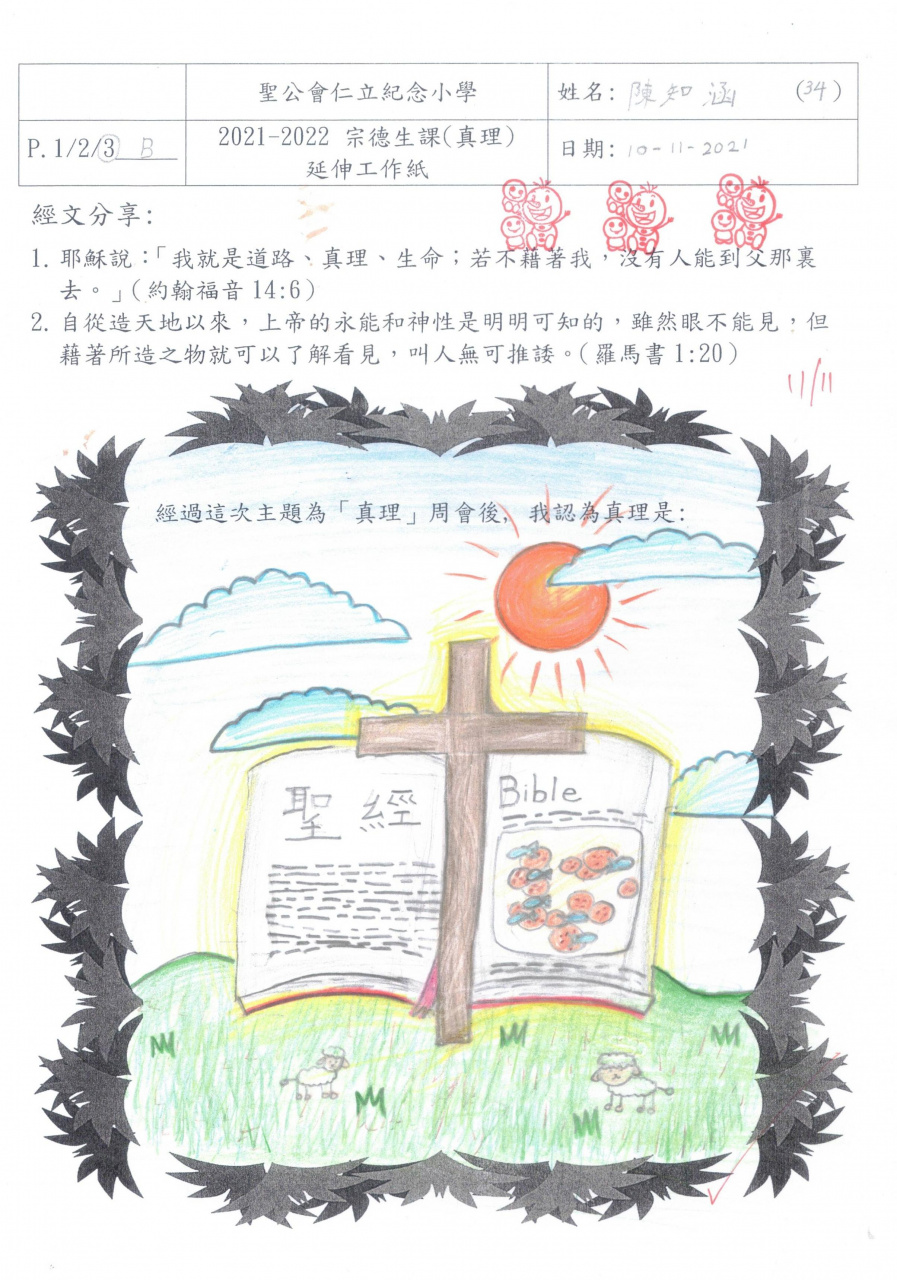 聖公會仁立紀念小學
姓名: 陳知涵 (34)
P.1/2/3 B
2021-2022 宗德生課(真理)
延伸工作紙
日期: 10-11-2021
經文分享:
1. 耶穌說:「我就是道路、真理、生命;若不藉著我,沒有人能到父那裏
去。」(約翰福音 14:6)
2. 自從造天地以來,上帝的永能和神性是明明可知的,雖然眼不能見,但
藉著所造之物就可以了解看見,叫人無可推諉。(羅馬書 1:20)
11/11
經過這次主題為「真理」周會後, 我認為真理是:
聖經
Bible